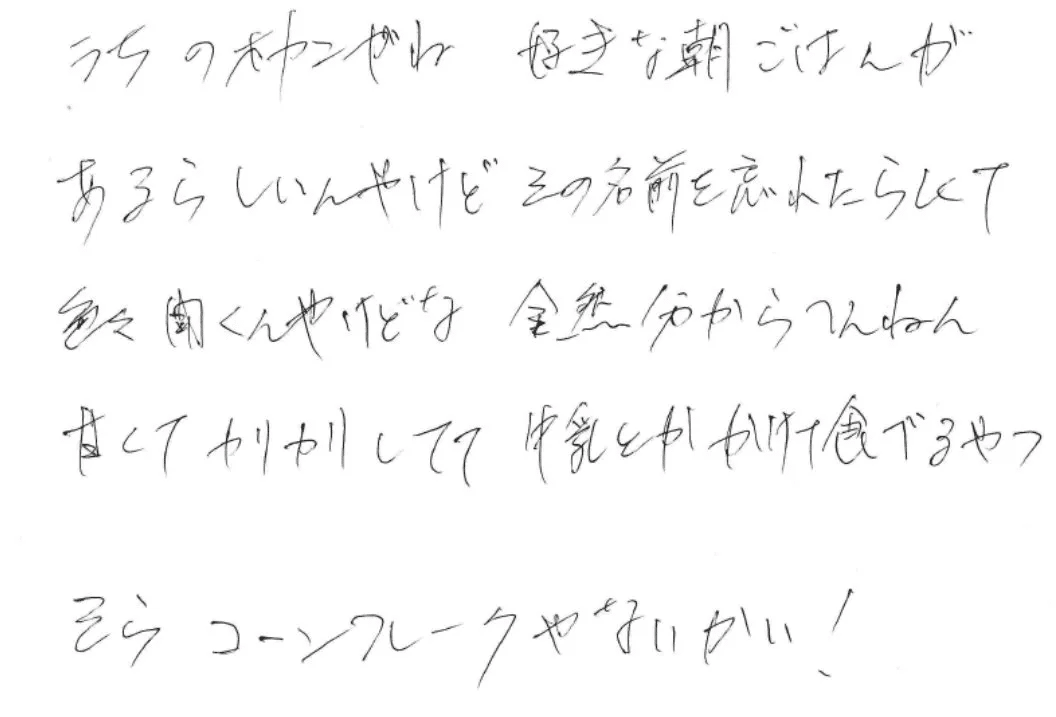 うちのオカンがね 好きな朝ごはんが
あるらしいんやけど その名前を忘れたらしくて
色々聞くんやけどな 全然分からへんねん
甘くてカリカリしてて 牛乳とかかけて食べるやつ
そら コーンフレークやないかい!